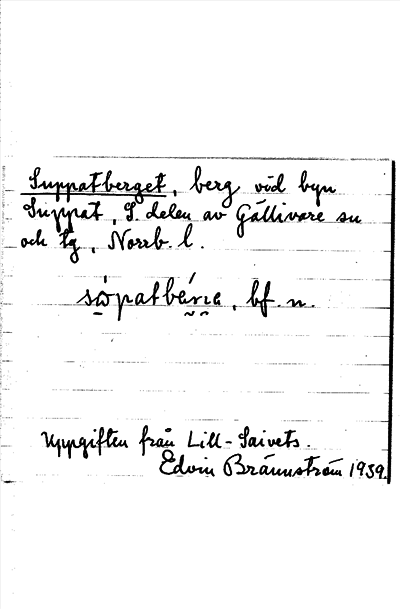 Suppatberget, berg vid byn
Suppat, S. delen av Gällivare sn
och tg, Norrb. l.
bf. n.
Uppgiften från Lill-Saivets.
Edvin Brännström 1939.